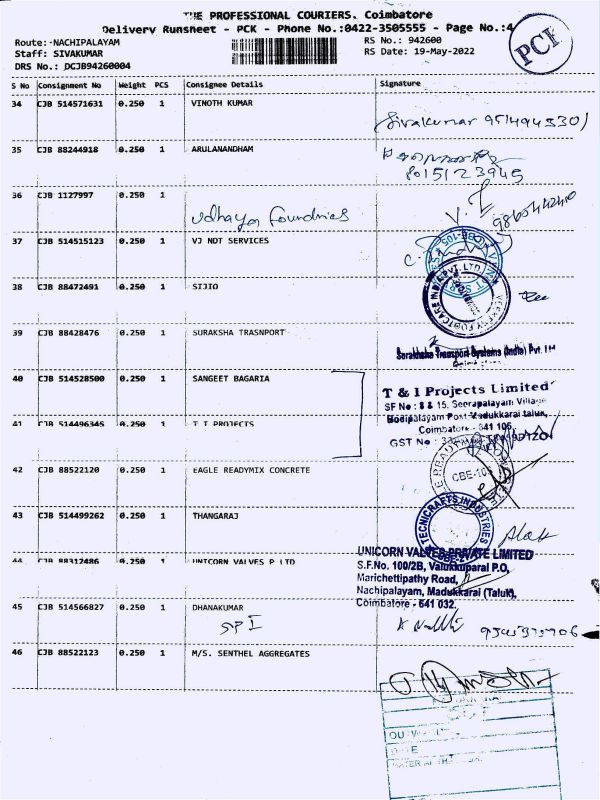 THE PROFESSIONAL COURIERS. Coimbatore
Delivery Runsheet - PCK - Phone No.:0422-3505555 - Page No.:4
Route:-NACHIPALAYAM RS No.: 942600
Staff: SIVAKUMAR RS Date: 19-May-2022
DRS No.: DCJB94260004
PCI
S No Consignment No Weight PCS Consignee Details Signature
34 CJB 514571631 0.250 1 VINOTH KUMAR
Sivakumar
35 CJB 88244918 0.250 1 ARULANANDHAM
8015123945
36 CJB 1127997 0.250 1
Udhaya foundries
9865442410
37 CJB 514515123 0.250 1 VJ NDT SERVICES
38 CJB 88472491 0.250 1 SIJIO
39 CJB 88428476 0.250 1 SURAKSHA TRASNPORT
Suraksha Transport Systems (India) Pvt.
40 CJB 514528500 0.250 1 SANGEET BAGARIA
T & I Projects Limited
SF No : 8 & 15, Seerapalayam Village
Bodipalayam Post Madukkarai taluk,
41 CJB 514496345 0.250 1 T I PROJECTS
Coimbatore - 641 105.
GST No :
42 CJB 88522120 0.250 1 EAGLE READYMIX CONCRETE
CBE-105
43 CJB 514499262 0.250 1 THANGARAJ
TECNICRAFTS INDUSTRIES
44 CJB 88312486 0.250 1 UNICORN VALVES P LTD
UNICORN VALVES PRIVATE LIMITED
S.F.No. 100/2B, Valukkuparai P.O,
Marichettipathy Road,
Nachipalayam, Madukkarai (Taluk),
Coimbatore - 641 032.
45 CJB 514566827 0.250 1 DHANAKUMAR
SPI
46 CJB 88522123 0.250 1 M/S. SENTHEL AGGREGATES